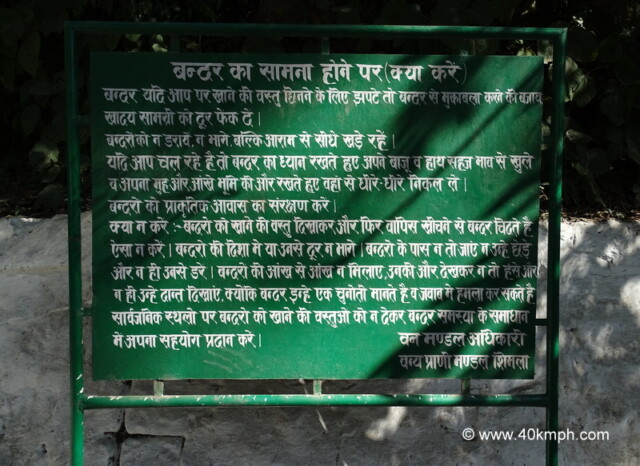 बन्दर का सामना होने पर (क्या करें)
बन्दर यदि आप पर खाने की वस्तु छिनने के लिए झपटे तो बन्दर से मुकाबला करने की बजाय
खाद्य सामग्री को दूर फेंक दें।
बन्दरों को न डरावें, न भागे, बल्कि आराम से सीधे खड़े रहें।
यदि आप चल रहे हैं तो बन्दर का ध्यान रखते हुए अपने बाजू व हाथ सहज भाव से खुले
व अपना मुह और आंखे भूमि की और रखते हुए वहां से धीरे-धीरे निकल लें।
बन्दरों को प्राकृतिक आवास का संरक्षण करें।
क्या न करें :- बन्दरों को खाने की वस्तु दिखाकर और फिर वापिस खींचने से बन्दर चिढ़ते है
ऐसा न करें। बन्दरों की दिशा में या उनसे दूर न भागें। बन्दरों के पास न तो जाएं न उन्हें छेड़े
और न ही उनसे डरें। बन्दरों की आंख से आंख न मिलाएं, उनकी और देखकर न तो हंसे और
न ही उन्हें दान्त दिखाएं, क्योंकि बन्दर इन्हें एक चुनोती मानते है व जवाब में हमला कर सकते है
सार्वजनिक स्थलों पर बन्दरों को खाने की वस्तुओं को न देकर बन्दर समस्या के समाधान
में अपना सहयोग प्रदान करें।
वन मण्डल अधिकारी
वन्य प्राणी मण्डल शिमला
© www.40kmph.com